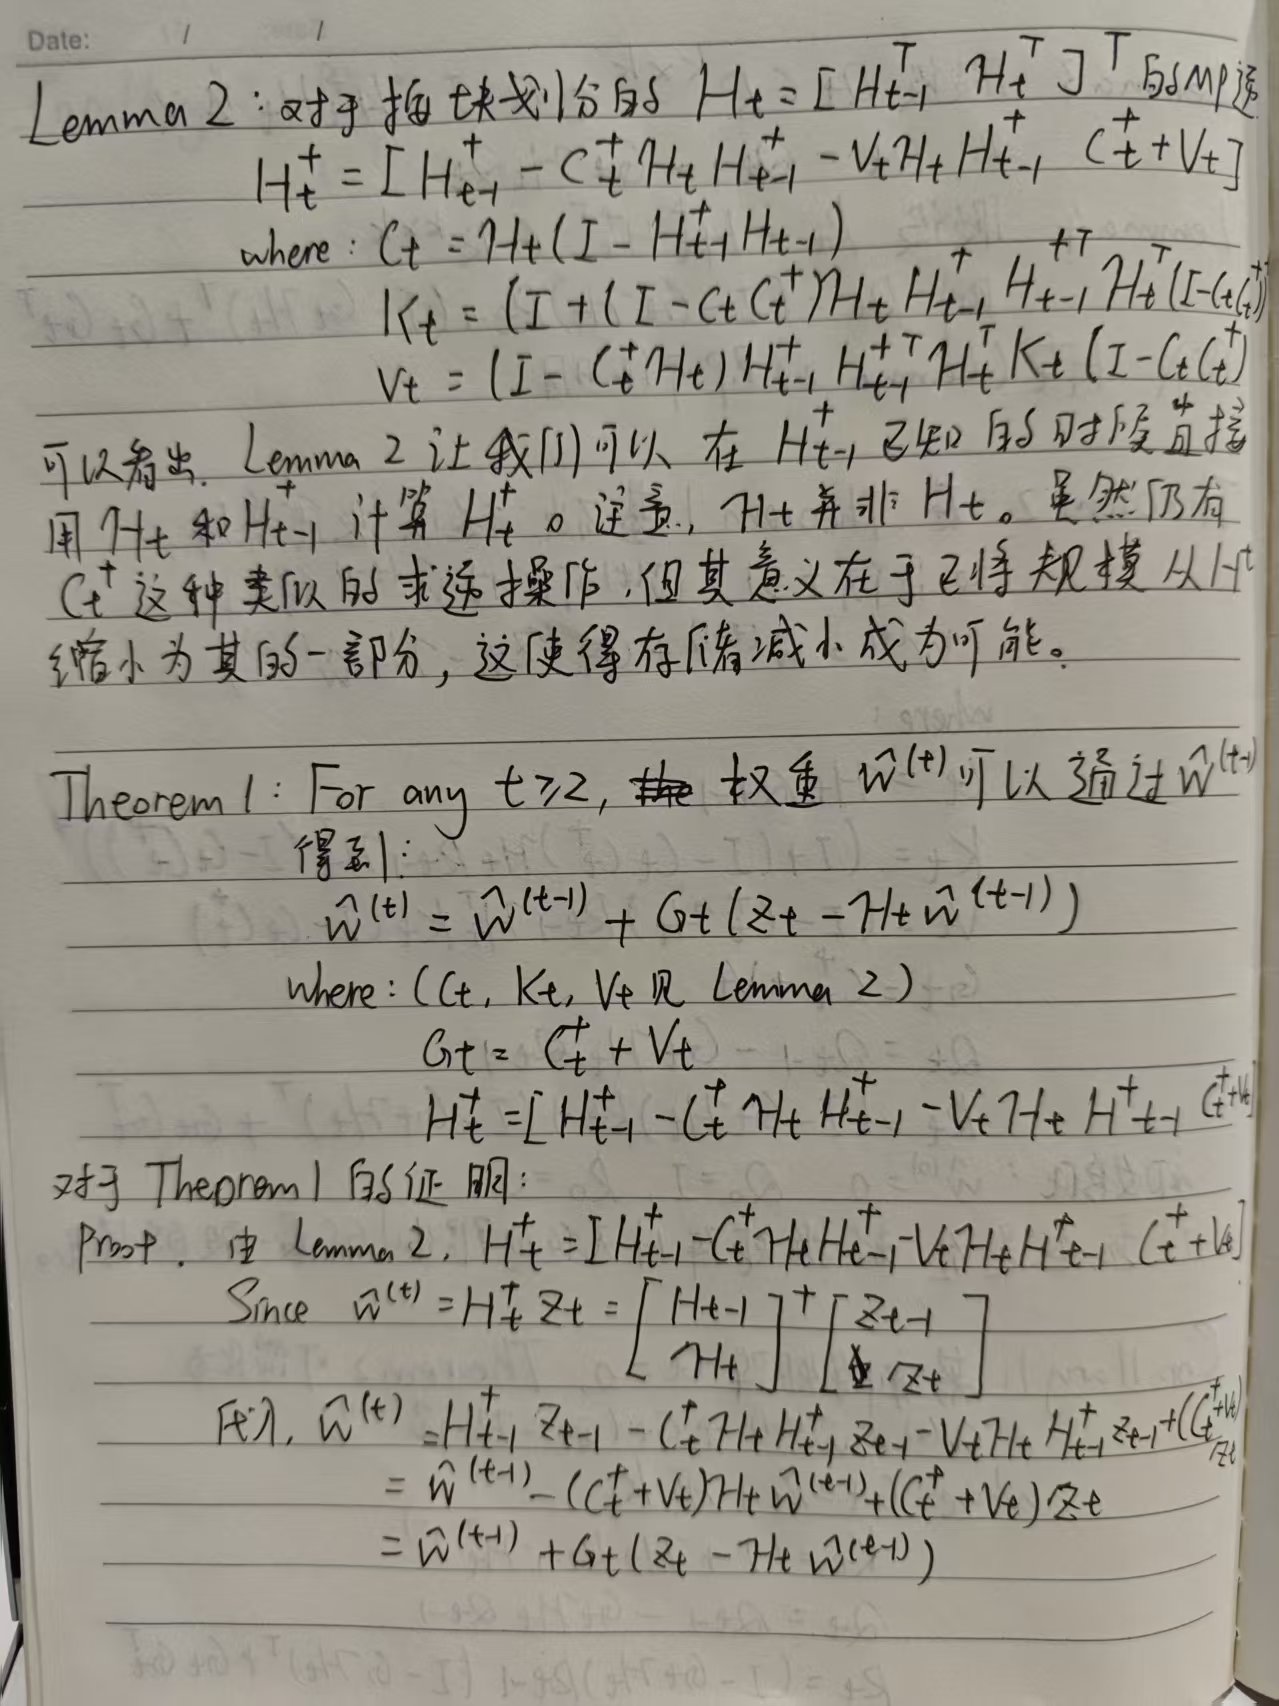 Date: / /
Lemma 2：对于按块划分的 Hₜ = [Hₜ₋₁ᵀ ℋₜᵀ]ᵀ 的MP逆
Hₜ⁺ = [Hₜ₋₁⁺ - Cₜ⁺ℋₜHₜ₋₁⁺ - VₜℋₜHₜ₋₁⁺ Cₜ⁺ + Vₜ]
where: Cₜ = ℋₜ(I - Hₜ₋₁⁺Hₜ₋₁)
Kₜ = (I + (I - CₜCₜ⁺)ℋₜHₜ₋₁⁺Hₜ₋₁⁺ᵀℋₜᵀ(I - CₜCₜ⁺))
Vₜ = (I - Cₜ⁺ℋₜ)Hₜ₋₁⁺Hₜ₋₁⁺ᵀℋₜᵀKₜ(I - CₜCₜ⁺)
可以看出. Lemma 2 让我们可以 在 Hₜ₋₁⁺ 已知 的时段直接
用 ℋₜ 和 Hₜ₋₁⁺ 计算 Hₜ⁺。注意, ℋₜ 并非 Hₜ。虽然仍有
Cₜ⁺ 这种类似的求逆操作,但其意义在于已将规模从Hₜ
缩小为其的一部分, 这使得存储减小成为可能。
Theorem 1: For any t≥2, 权重 ŵ⁽ᵗ⁾可以通过ŵ⁽ᵗ⁻¹⁾
得到:
ŵ⁽ᵗ⁾ = ŵ⁽ᵗ⁻¹⁾ + Gₜ(zₜ - ℋₜŵ⁽ᵗ⁻¹⁾)
where: (Cₜ, Kₜ, Vₜ 见 Lemma 2)
Gₜ = Cₜ⁺ + Vₜ
Hₜ⁺ = [Hₜ₋₁⁺ - Cₜ⁺ℋₜHₜ₋₁⁺ - VₜℋₜH⁺ₜ₋₁ Cₜ⁺+Vₜ]
对于 Theorem 1 的证明:
Proof. 由 Lemma 2, Hₜ⁺ = [Hₜ₋₁⁺ - Cₜ⁺ℋₜHₜ₋₁⁺ - VₜℋₜH⁺ₜ₋₁ Cₜ⁺ + Vₜ]
Since ŵ⁽ᵗ⁾ = Hₜ⁺Zₜ = [Hₜ₋₁ ; ℋₜ]⁺ [Zₜ₋₁ ; zₜ]
代入, ŵ⁽ᵗ⁾ = Hₜ₋₁⁺Zₜ₋₁ - Cₜ⁺ℋₜHₜ₋₁⁺Zₜ₋₁ - VₜℋₜHₜ₋₁⁺Zₜ₋₁ + (Cₜ⁺+Vₜ)zₜ
= ŵ⁽ᵗ⁻¹⁾ - (Cₜ⁺+Vₜ)ℋₜŵ⁽ᵗ⁻¹⁾ + (Cₜ⁺+Vₜ)zₜ
= ŵ⁽ᵗ⁻¹⁾ + Gₜ(zₜ - ℋₜŵ⁽ᵗ⁻¹⁾)